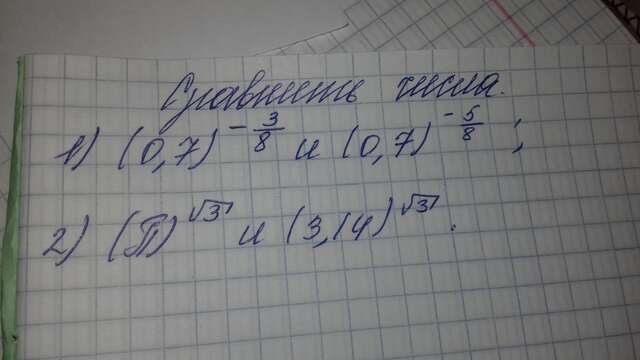 Сравнить числа.
1) (0,7)^{-\frac{3}{8}} и (0,7)^{-\frac{5}{8}} ;
2) (П)^{\sqrt{3}} и (3,14)^{\sqrt{3}} .